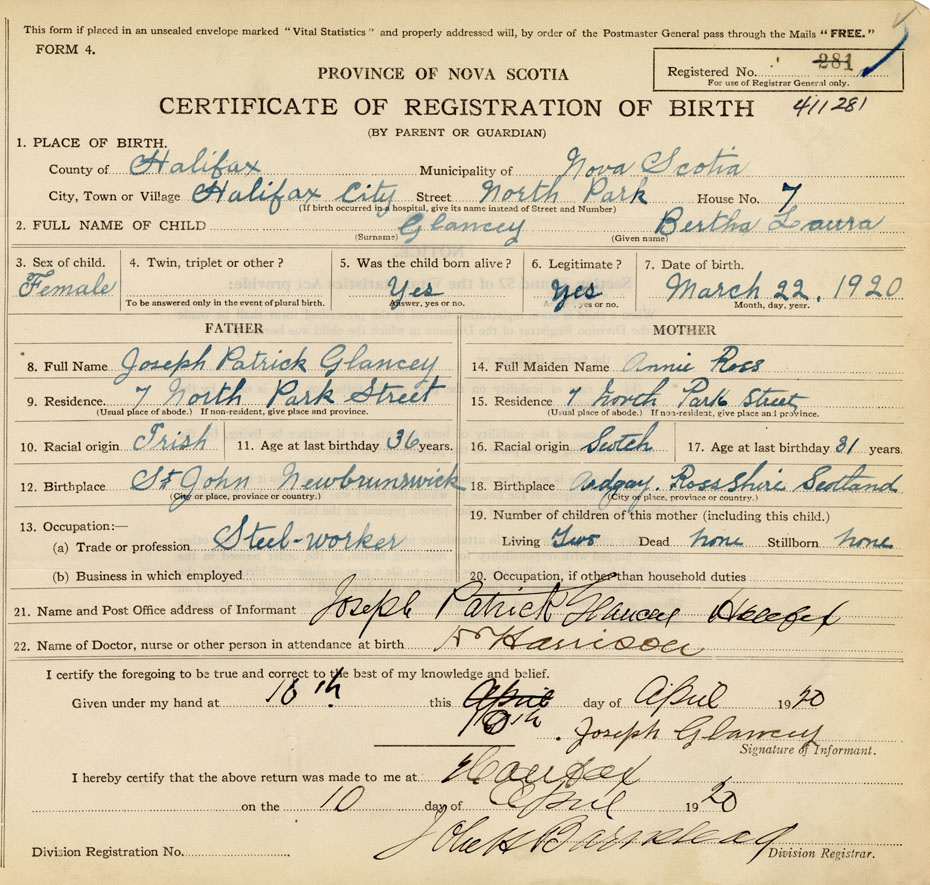 This form if placed in an unsealed envelope marked "Vital Statistics" and properly addressed will, by order of the Postmaster General pass through the Mails "FREE."
FORM 4.
Registered No. 281
For use of Registrar General only.
PROVINCE OF NOVA SCOTIA
CERTIFICATE OF REGISTRATION OF BIRTH 411281
(BY PARENT OR GUARDIAN)
1. PLACE OF BIRTH.
County of Halifax Municipality of Nova Scotia
City, Town or Village Halifax City Street North Park House No. 7
(If birth occurred in a hospital, give its name instead of Street and Number)
2. FULL NAME OF CHILD Glancey Bertha Laura
(Surname) (Given name)
3. Sex of child. 4. Twin, triplet or other? 5. Was the child born alive? 6. Legitimate? 7. Date of birth.
Female Yes Yes March 22, 1920
To be answered only in the event of plural birth. Answer, yes or no. yes or no. Month, day, year.
FATHER MOTHER
8. Full Name Joseph Patrick Glancey 14. Full Maiden Name Annie Ross
9. Residence. 7 North Park Street 15. Residence 7 North Park Street
(Usual place of abode.) If non-resident, give place and province. (Usual place of abode.) If non-resident, give place and province.
10. Racial origin Irish 11. Age at last birthday 36 years. 16. Racial origin Scotch 17. Age at last birthday 31 years.
12. Birthplace St John Newbrunswick 18. Birthplace Ardgay. Ross Shire Scotland
(City or place, province or country.) (City or place, province or country.)
13. Occupation:— 19. Number of children of this mother (including this child.)
(a) Trade or profession Steel-worker Living Two Dead none Stillborn none
(b) Business in which employed 20. Occupation, if other than household duties
21. Name and Post Office address of Informant Joseph Patrick Glancey Halifax
22. Name of Doctor, nurse or other person in attendance at birth Dr Harrison
I certify the foregoing to be true and correct to the best of my knowledge and belief.
Given under my hand at 10th this April 10th day of April 1920
Joseph Glancey
Signature of Informant.
I hereby certify that the above return was made to me at Halifax
on the 10 day of April 1920
Division Registration No. Division Registrar.